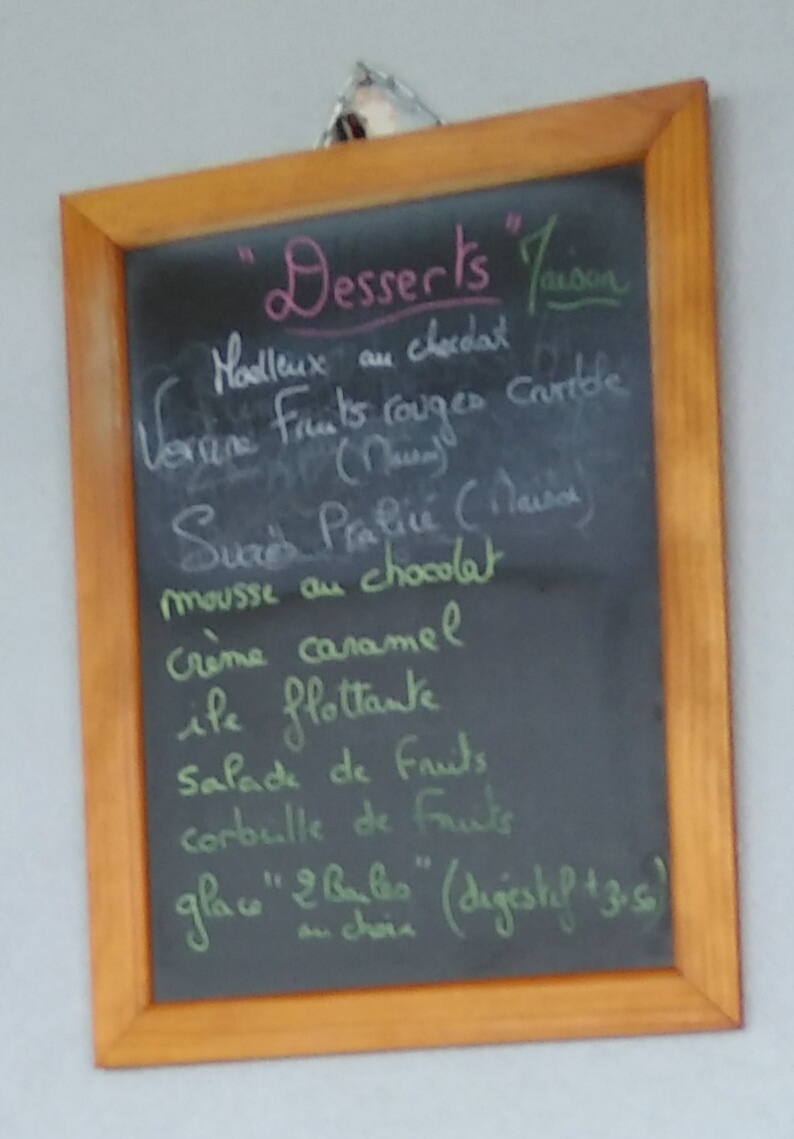 "Desserts" Maison
Moelleux au chocolat
Verrine Fruits rouges Crumble
(Maison)
Succès Praliné (Maison)
mousse au chocolat
crème caramel
ile flottante
salade de Fruits
corbeille de Fruits
glace "2 Boules" (digéstif + 3.50)
au choix